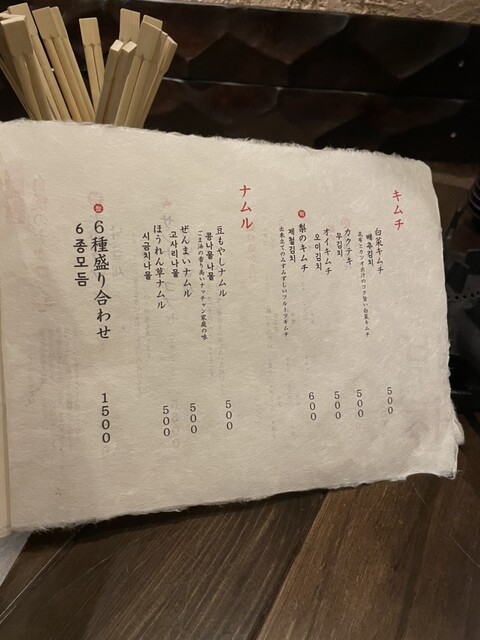 キムチ
白菜キムチ 500
배추김치
昆布とカツオ出汁のコク旨い白菜キムチ
カクテキ 500
무김치
オイキムチ 500
오이김치
梨のキムチ 600
제철김치
出来立てのみずみずしいフルーツキムチ
ナムル
豆もやしナムル 500
콩나물나물
ごま油の香り高いナッチャン家庭の味
ぜんまいナムル 500
고사리나물
ほうれん草ナムル 500
시금치나물
6種盛り合わせ 1500
6종모듬